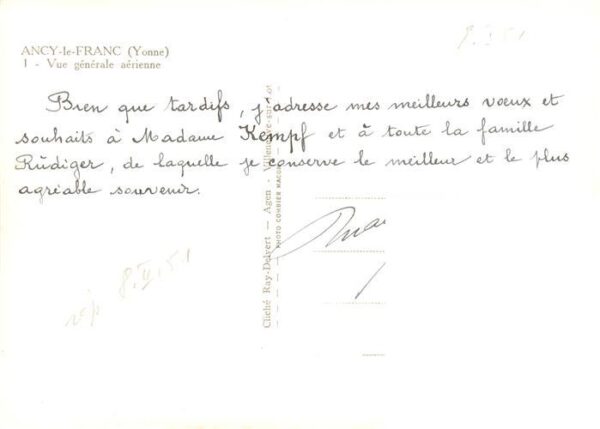 8.I.51
ANCY-le-FRANC (Yonne)
1 - Vue générale aérienne
Bien que tardifs, j'adresse mes meilleurs vœux et
souhaits à Madame Kempf et à toute la famille
Rüdiger, de laquelle je conserve le meilleur et le plus
agréable souvenir.
Cliché Ray-Delvert — Agen - Villeneuve-sur-Lot
PHOTO COMBIER MACON
rép 8.II.51